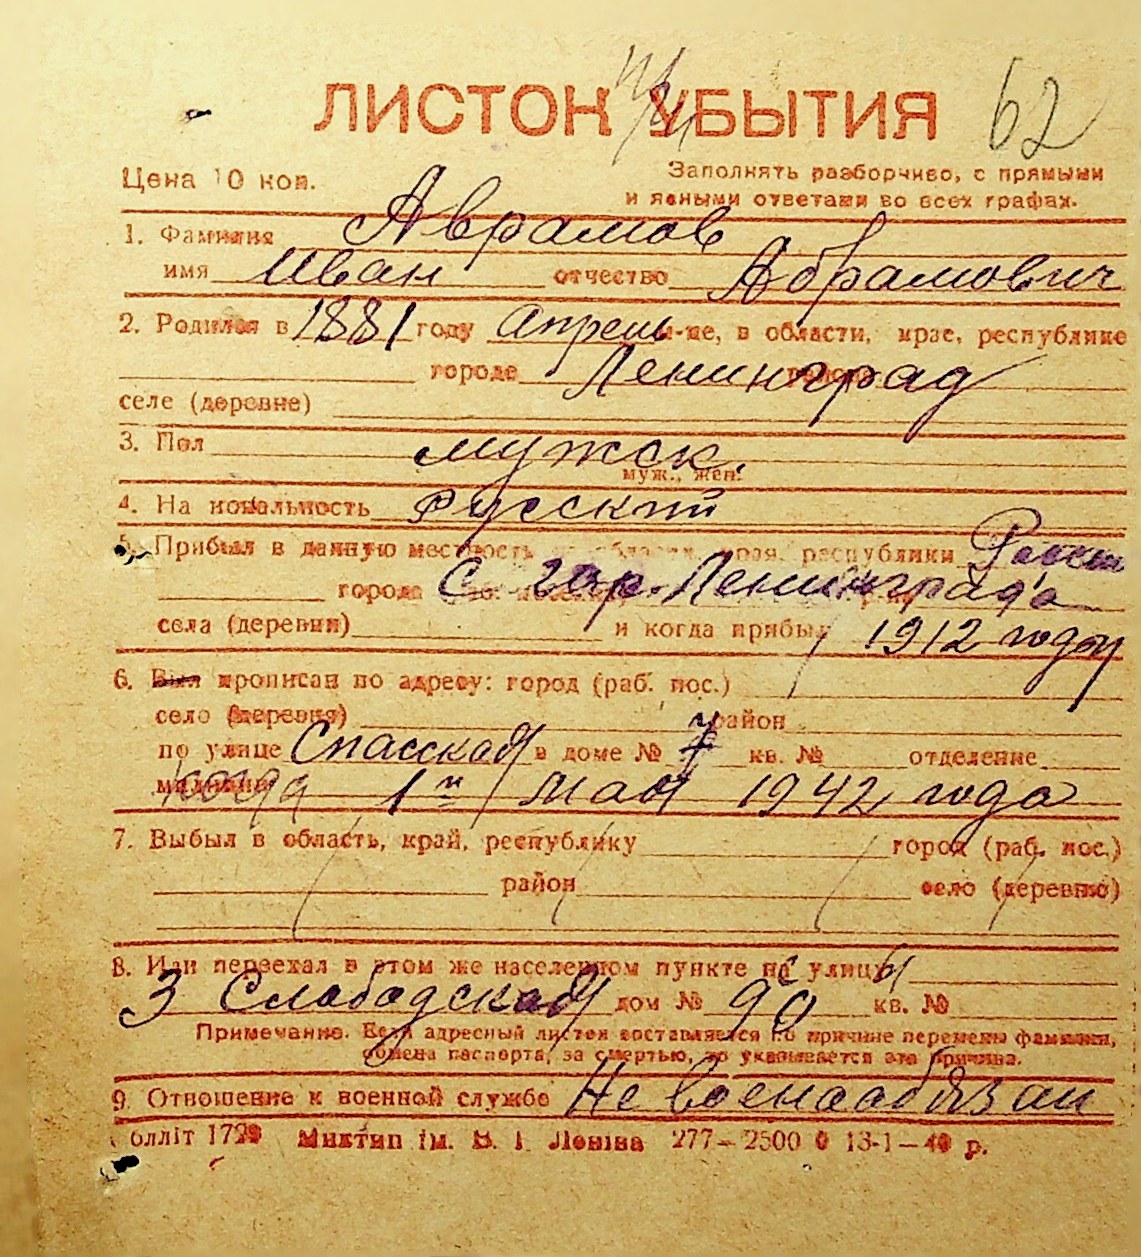 ЛИСТОК УБЫТИЯ 62
Цена 10 коп.
Заполнять разборчиво, с прямыми
и ясными ответами во всех графах.
1. Фамилия Аврамов
имя Иван отчество Абрамович
2. Родился в 1881 году Апрель м-це, в области, крае, республике
городе Ленинград
селе (деревне)
3. Пол мужск.
муж., жен.
4. Национальность Русский
5. Прибыл в данную местность из области, края, республики
города С гор. Ленинграда
села (деревни) и когда прибыл 1912 году
6. Был прописан по адресу: город (раб. пос.)
село (деревня) район
по улице Спасская в доме № 7 кв. № отделение
милиции когда 1го Мая 1942 года
7. Выбыл в область, край, республику город (раб. пос.)
район село (деревню)
8. Или переехал в этом же населенном пункте на улицу
3 Слабодская дом № 90 кв. №
Примечание. Если адресный листок составляется по причине перемены фамилии,
обмена паспорта, за смертью, то указывается эта причина.
9. Отношение к военной службе Не военаобязан
Миктип ім. В. І. Леніна 277—2500 13-1—40 р.